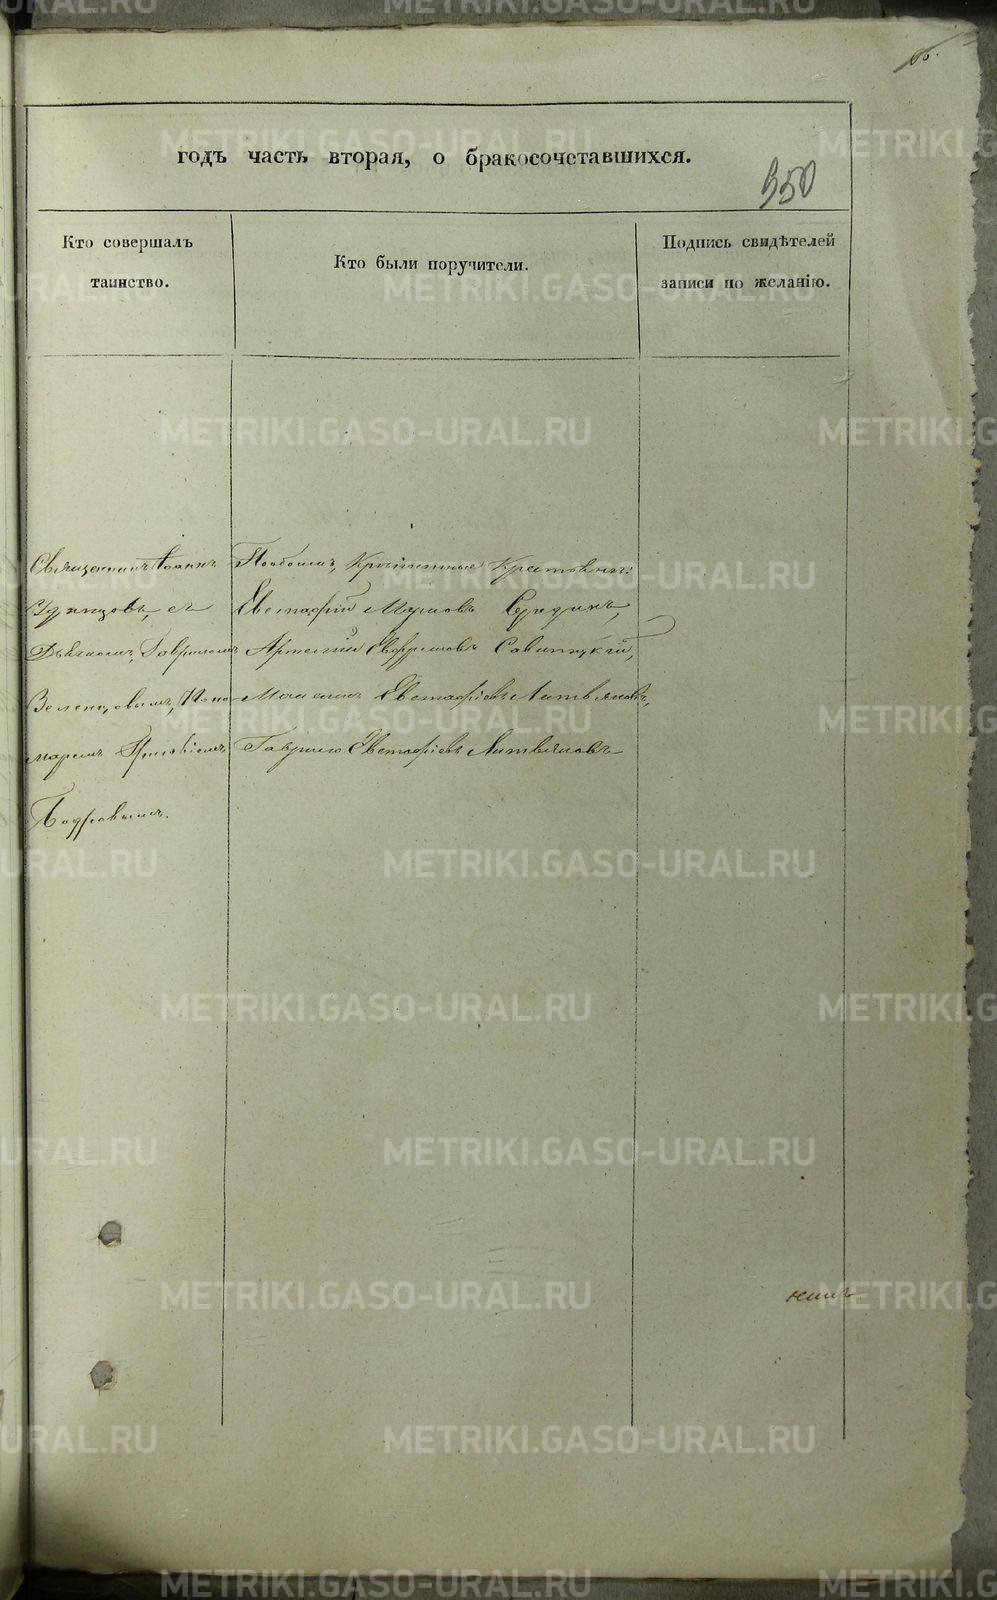 годъ часть вторая, о бракосочетавшихся.
350
Кто совершалъ
таинство.
Кто были поручители.
Подпись свидѣтелей
записи по желанію.
Священникъ Іоаннъ
Удинцовъ, съ
Дьячкомъ, Гавриломъ
Зеленцовымъ, Поно
маремъ
По обоимъ, Крестьяне:
Евстафій Сурдинъ,
Артемій Ефремовъ Савицкій,
Моисей Евстафіевъ Литвяковъ,
Гаврило Евстафіевъ Литвяковъ
METRIKI.GASO-URAL.RU